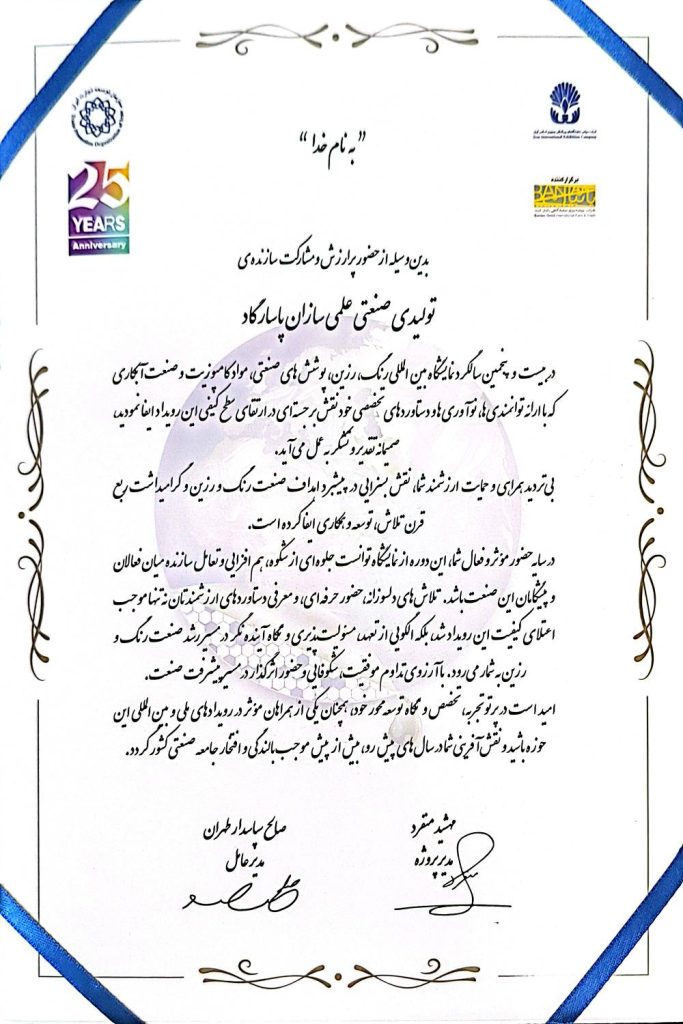 سازمان توسعه تجارت ایران
25
YEARS
Anniversary
Iran International Exhibitions Company
برگزارکننده
" به نام خدا "
بدین وسیله از حضور پر ارزش و مشارکت سازنده‌ی
تولیدی صنعتی علمی سازان پاسارگاد
در بیست و پنجمین سالگرد نمایشگاه بین المللی رنگ، رزین، پوشش های صنعتی، مواد کامپوزیت و صنعت آبکاری
که با ارائه توانمندی ها، نوآوری ها و دستاوردهای تخصصی خود نقش برجسته ای در ارتقای سطح کیفی این رویداد ایفا نمودید،
صمیمانه تقدیر و تشکر به عمل می آید.
بی تردید همراهی و حمایت ارزشمند شما، نقش بسزایی در پیشبرد اهداف صنعت رنگ و رزین و گرامیداشت ربع
قرن تلاش، توسعه و همکاری ایفا کرده است.
در سایه حضور مؤثر و فعال شما، این دوره از نمایشگاه توانست جلوه ای از شکوه، هم افزایی و تعامل سازنده میان فعالان
و پیشگامان این صنعت باشد. تلاش های دلسوزانه، حضور حرفه ای، و معرفی دستاوردهای ارزشمندتان نه تنها موجب
اعتلای کیفیت این رویداد شد، بلکه الگویی از تعهد، مسئولیت پذیری و نگاه آینده نگر در مسیر رشد صنعت رنگ و
رزین به شمار می رود. با آرزوی تداوم موفقیت، شکوفایی و حضور اثرگذار در مسیر پیشرفت صنعت.
امید است در پرتو تجربه، تخصص و نگاه توسعه محور خود، همچنان یکی از همراهان مؤثر در رویدادهای ملی و بین المللی این
حوزه باشید و نقش آفرینی شما در سال های پیش رو، بیش از پیش موجب بالندگی و افتخار جامعه صنعتی کشور گردد.
مهشید منفرد
مدیر پروژه
صالح پاسدار طهران
مدیر عامل